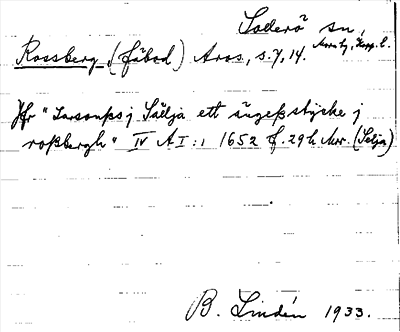 Solerö sn,
Rossberg (fäbod) Aros, s. 7, 14.
Jfr "Larsonßs j Sällja ett ängeßstycke j
roßbergh" IV A I:1 1652 f. 29 h Mor. (Selja)
B. Lindén 1933.